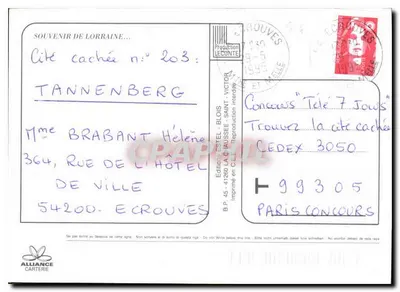 SOUVENIR DE LORRAINE...
Cité cachée n° 203:
TANNENBERG
Mme BRABANT Hélène
364, RUE DE L'HÔTEL
DE VILLE
54200. ECROUVES
ALLIANCE
CARTERIE
Editions ESTEL - BLOIS
B.P. 45 - 41260 LA CHAUSSEE - SAINT - VICTOR
Imprimé en C.E.E. - Reproduction interdite
LA CIGOGNE
ECROUVES
Concours "Télé 7 Jours"
Trouvez la cité cachée
CEDEX 3050
T 99305
PARIS CONCOURS